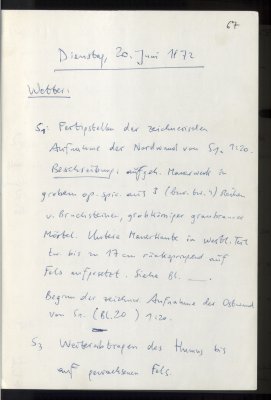 67
Dienstag, 20. Juni 1972
Wetter:
S1: Fertigstellen der zeichnerischen
Aufnahme der Nordwand von S1. 1:20.
Beschreibung: aufgeh. Mauerwerk in
grobem op. spic. aus 5 (bzw. 4) Reihen
v. Bruchsteinen, grobkörniger graubrauner
Mörtel. Untere Mauerkante im westl. Teil
bis zu 17 cm rückspringend auf
Fels aufgesetzt. Siehe Bl. __.
Beginn der zeichner. Aufnahme der Ostwand
von S1 (Bl. 20 ) 1:20.
S3 Weiterabtragen des Humus bis
auf gewachsenen Fels.